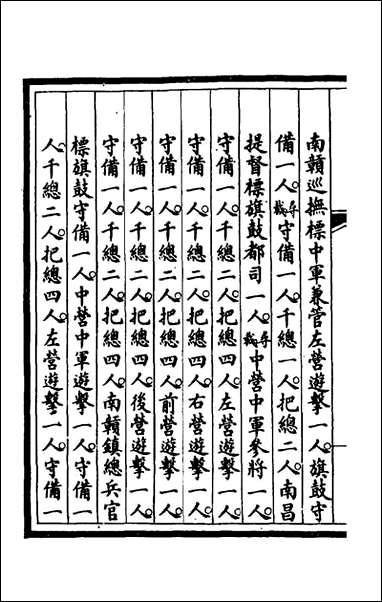 南贛巡撫標中軍兼管左營遊擊一人旗鼓守
備一人尋裁守備一人千總一人把總二人南昌
提督標旗鼓都司一人尋裁中營中軍參將一人
守備一人千總二人把總四人左營遊擊一人
守備一人千總二人把總四人右營遊擊一人
守備一人千總二人把總四人前營遊擊一人
守備一人千總二人把總四人後營遊擊一人
守備一人千總二人把總四人南贛鎮總兵官
標旗鼓守備一人中營中軍遊擊一人守備一
人千總二人把總四人左營遊擊一人守備一